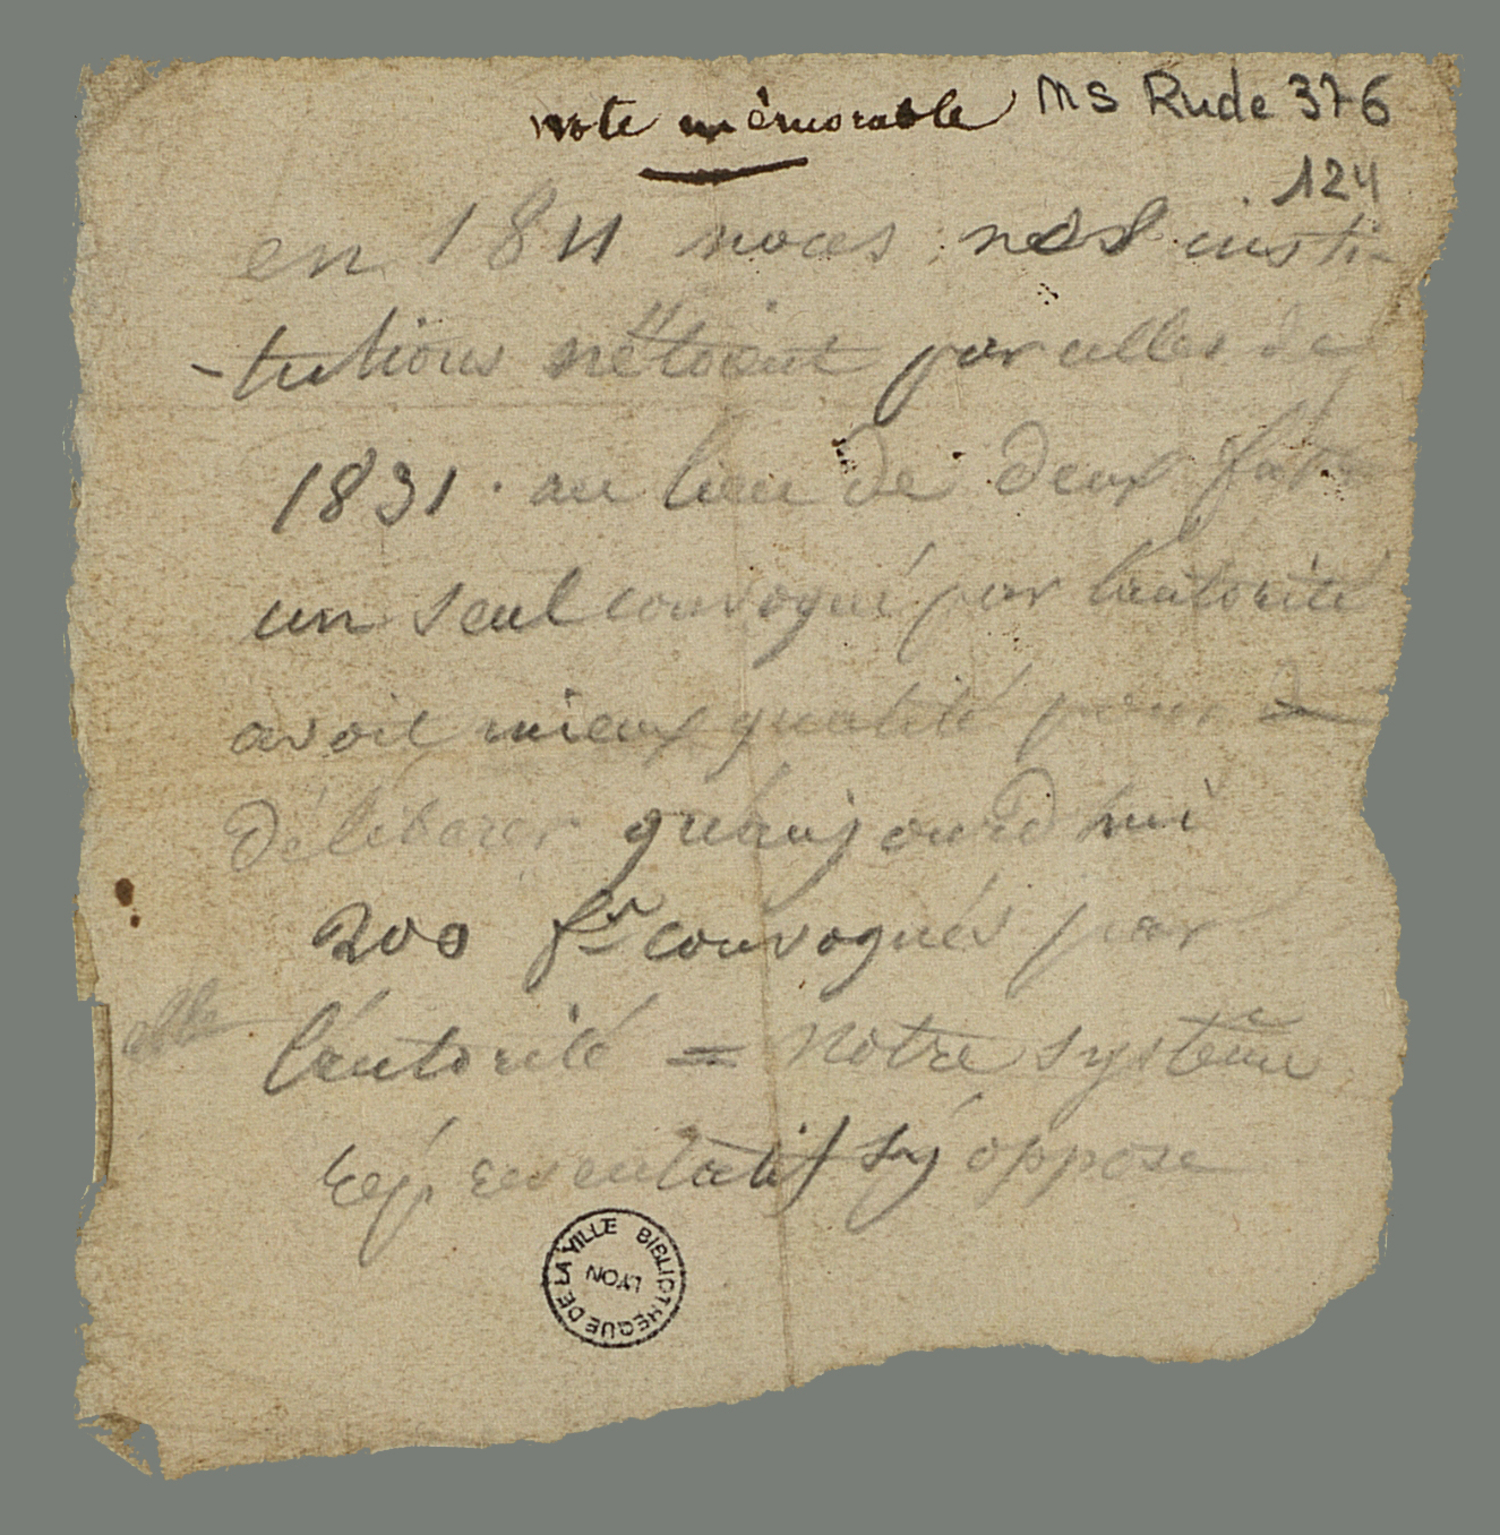 note mémorable
MS Rude 376
124
en 1811 nous nos insti-
-tutions n'étoient par celles de
1831. au lieu de deux fab
un seul convoqué par l'autorité
avoit mieux qualité pour
délibérer qu'aujourd'hui
200 f.rs convoqués par
l'autorité = notre système
représentatif s'y oppose
BIBLIOTHEQUE DE LA VILLE
LYON